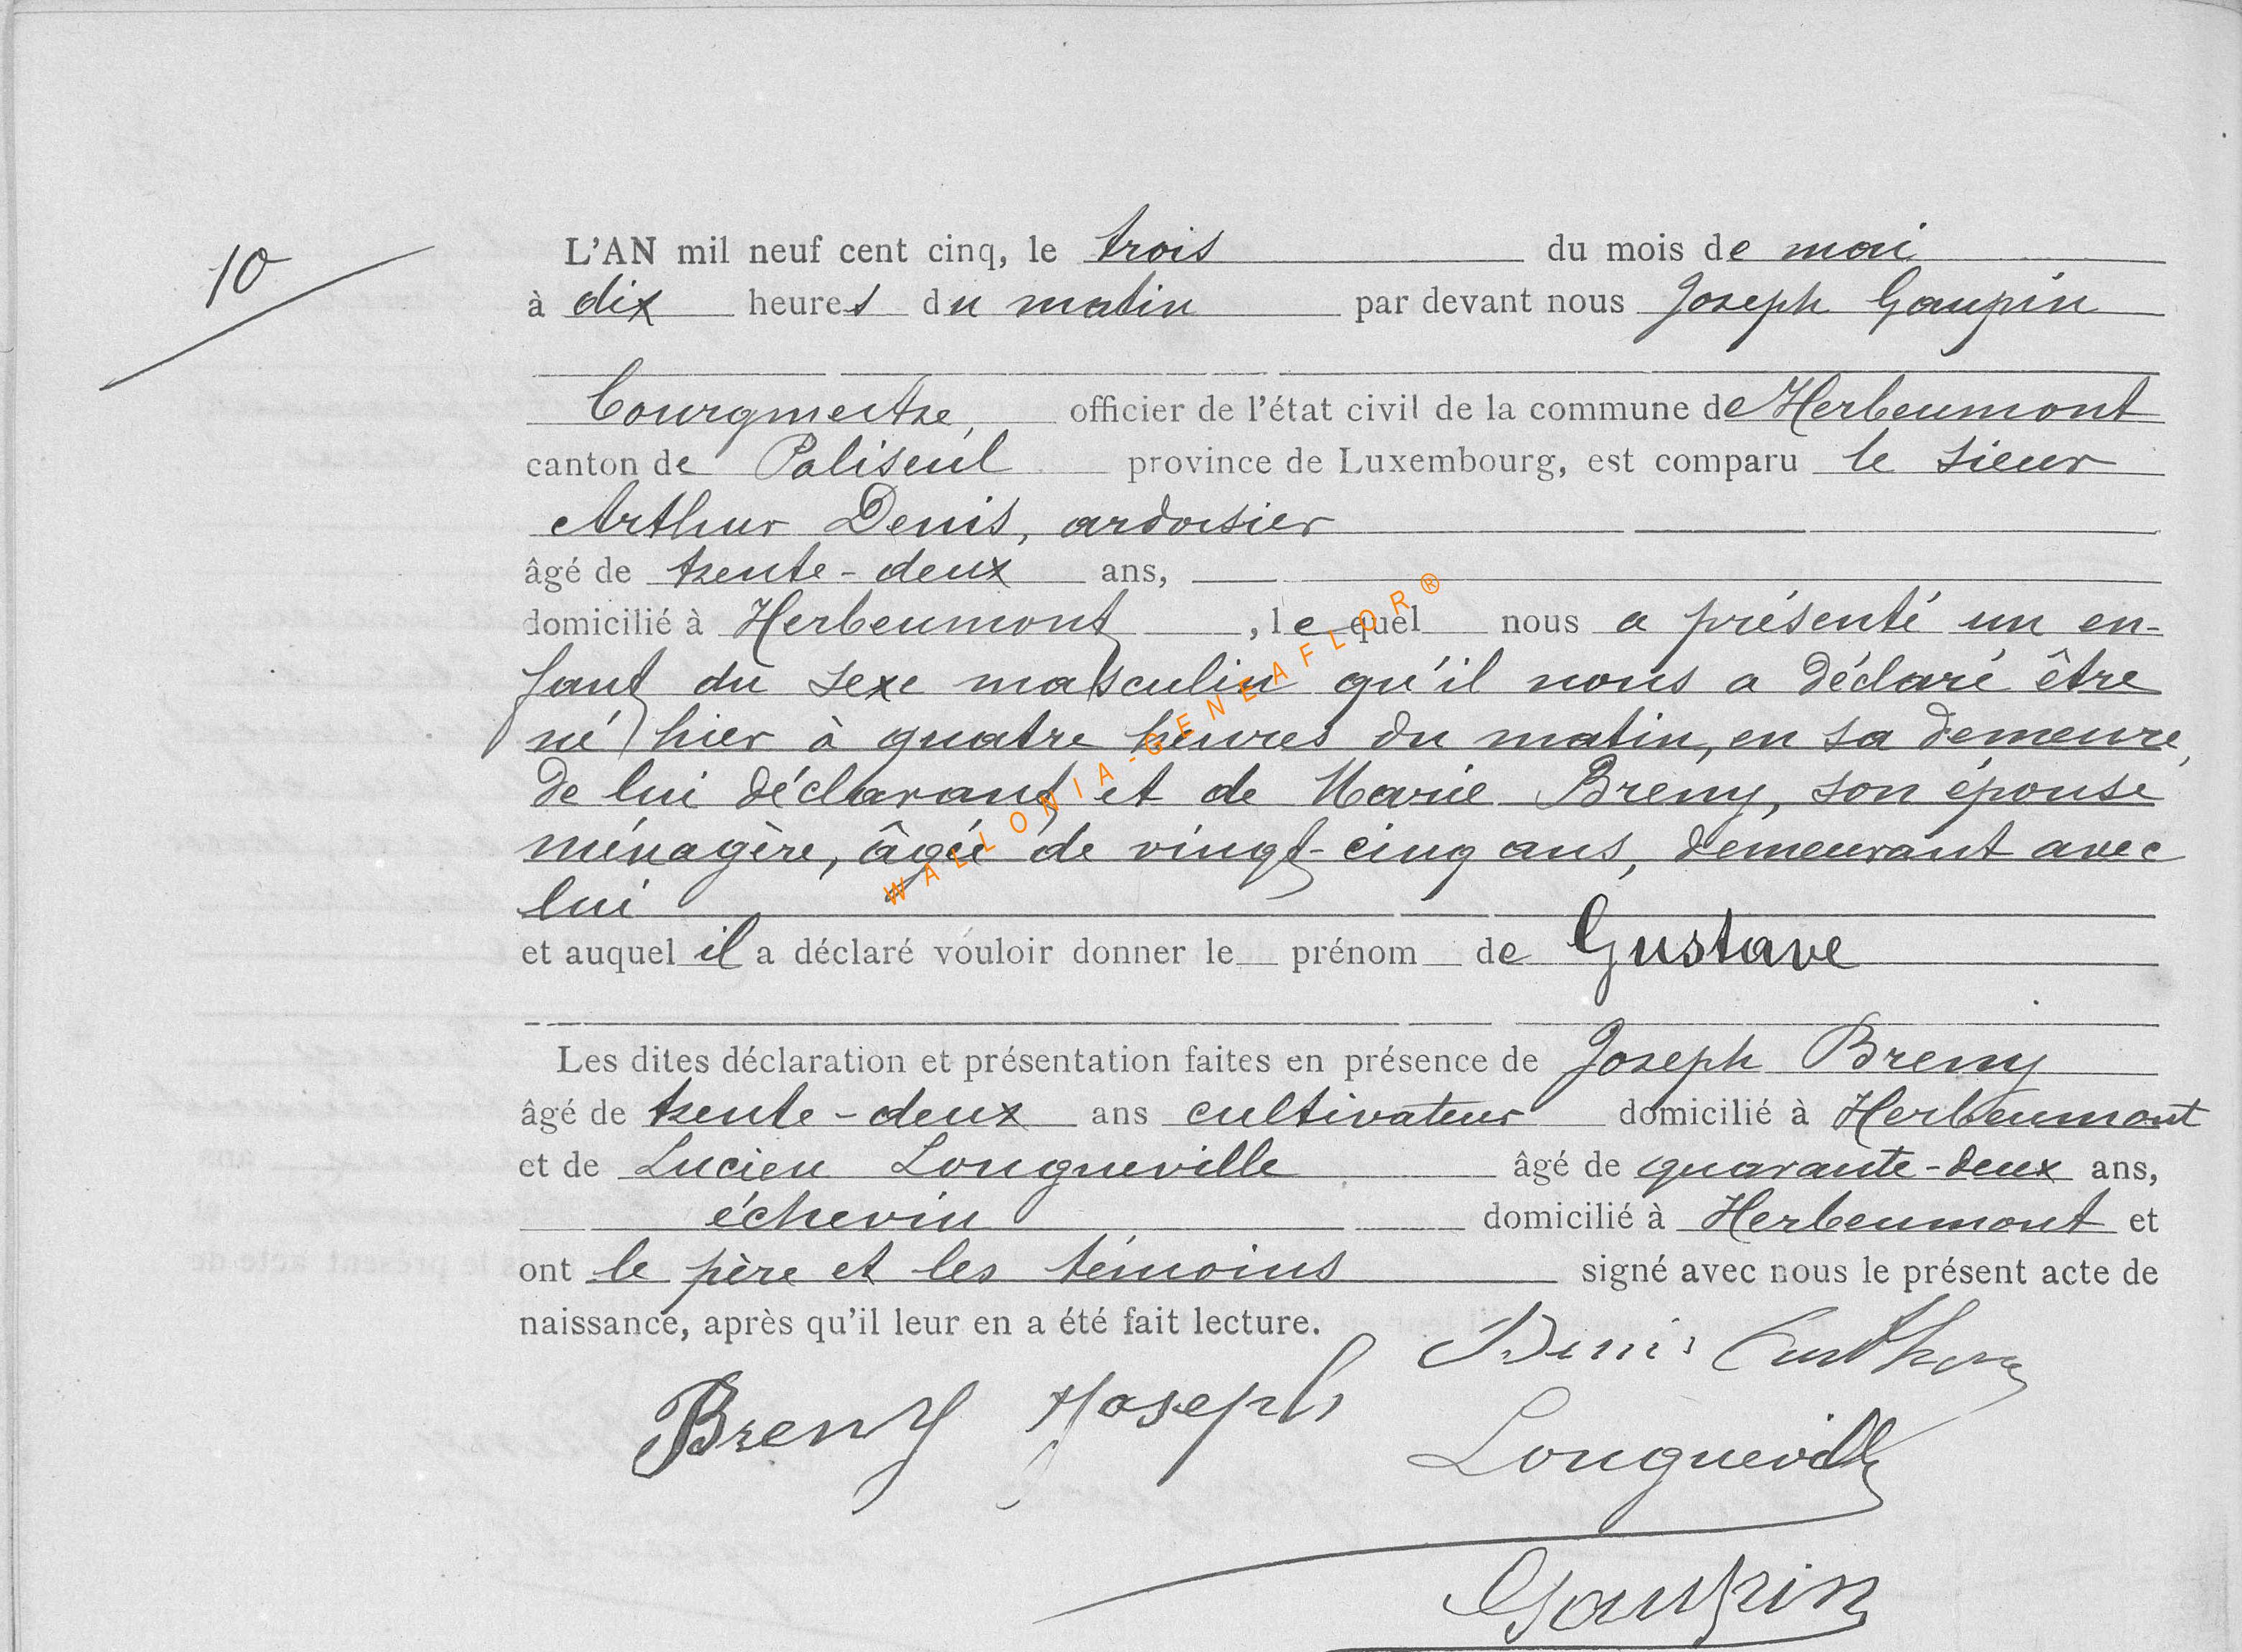 10
L'AN mil neuf cent cinq, le trois du mois de mai
à dix heures du matin par devant nous Joseph Gaupin
bourgmestre, officier de l'état civil de la commune de Herbeumont
canton de Paliseul province de Luxembourg, est comparu le sieur
Arthur Denis, ardoisier
âgé de trente-deux ans,
domicilié à Herbeumont, lequel nous a présenté un en-
fant du sexe masculin qu'il nous a déclaré être
né hier à quatre heures du matin, en sa demeure,
de lui déclarant, et de Marie Breny, son épouse
ménagère, âgée de vingt-cinq ans, demeurant avec
lui
et auquel il a déclaré vouloir donner le prénom de Gustave
Les dites déclaration et présentation faites en présence de Joseph Breny
âgé de trente-deux ans cultivateur domicilié à Herbeumont
et de Lucien Longueville âgé de quarante-deux ans,
échevin domicilié à Herbeumont et
ont le père et les témoins signé avec nous le présent acte de
naissance, après qu'il leur en a été fait lecture.
Denis Arthur
Breny Joseph
Longueville
Gaupin
WALLONIA-GENEAFLOR®